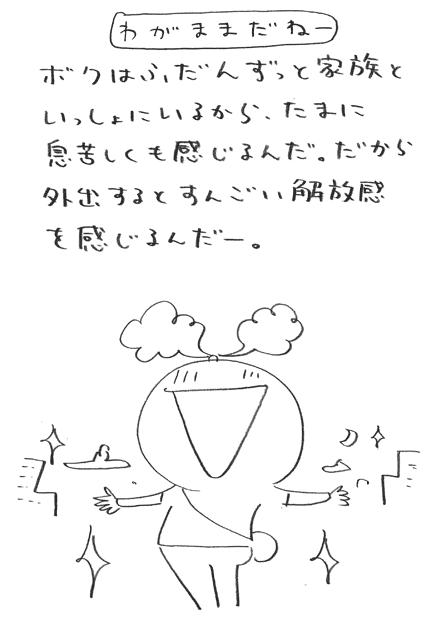 わがままだねー
ボクはふだんずっと家族と
いっしょにいるから、たまに
息苦しくも感じるんだ。だから
外出するとすんごい解放感
を感じるんだー。